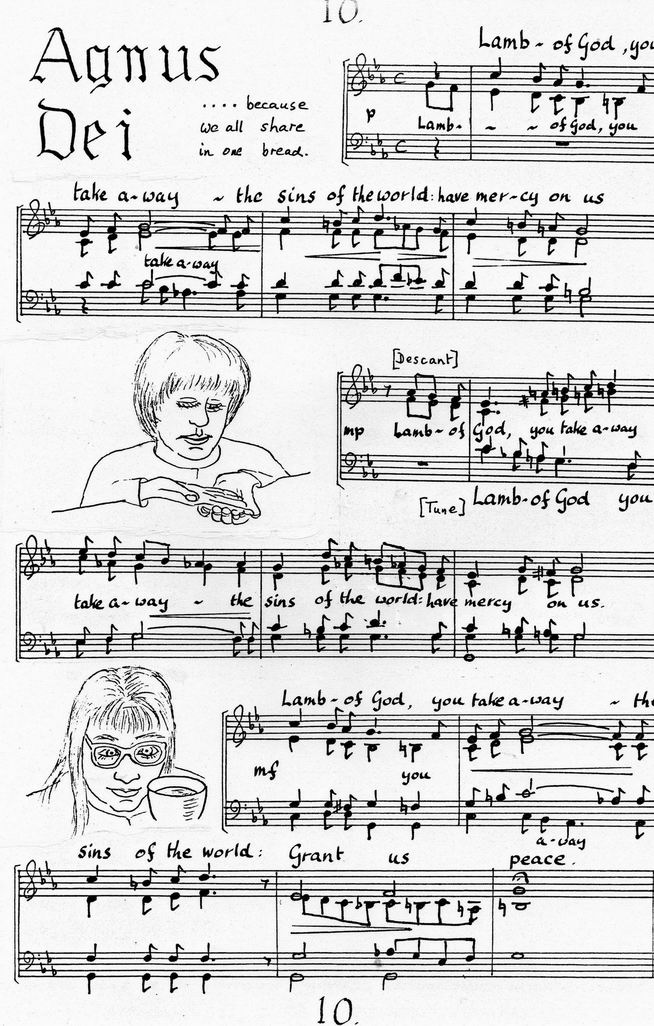 10.
Agnus
Dei
.... because
we all share
in one bread.
Lamb ~ of God, you
p
Lamb- ~ ~ of God, you
take a-way ~ the sins of the world: have mer-cy on us
take a-way
[Descant]
mp Lamb- of God, you take a-way
[Tune] Lamb-of God you
take a-way ~ the sins of the world: have mercy on us.
Lamb- of God, you take a-way ~ the
mf you
a-way
sins of the world: Grant us peace.
10.